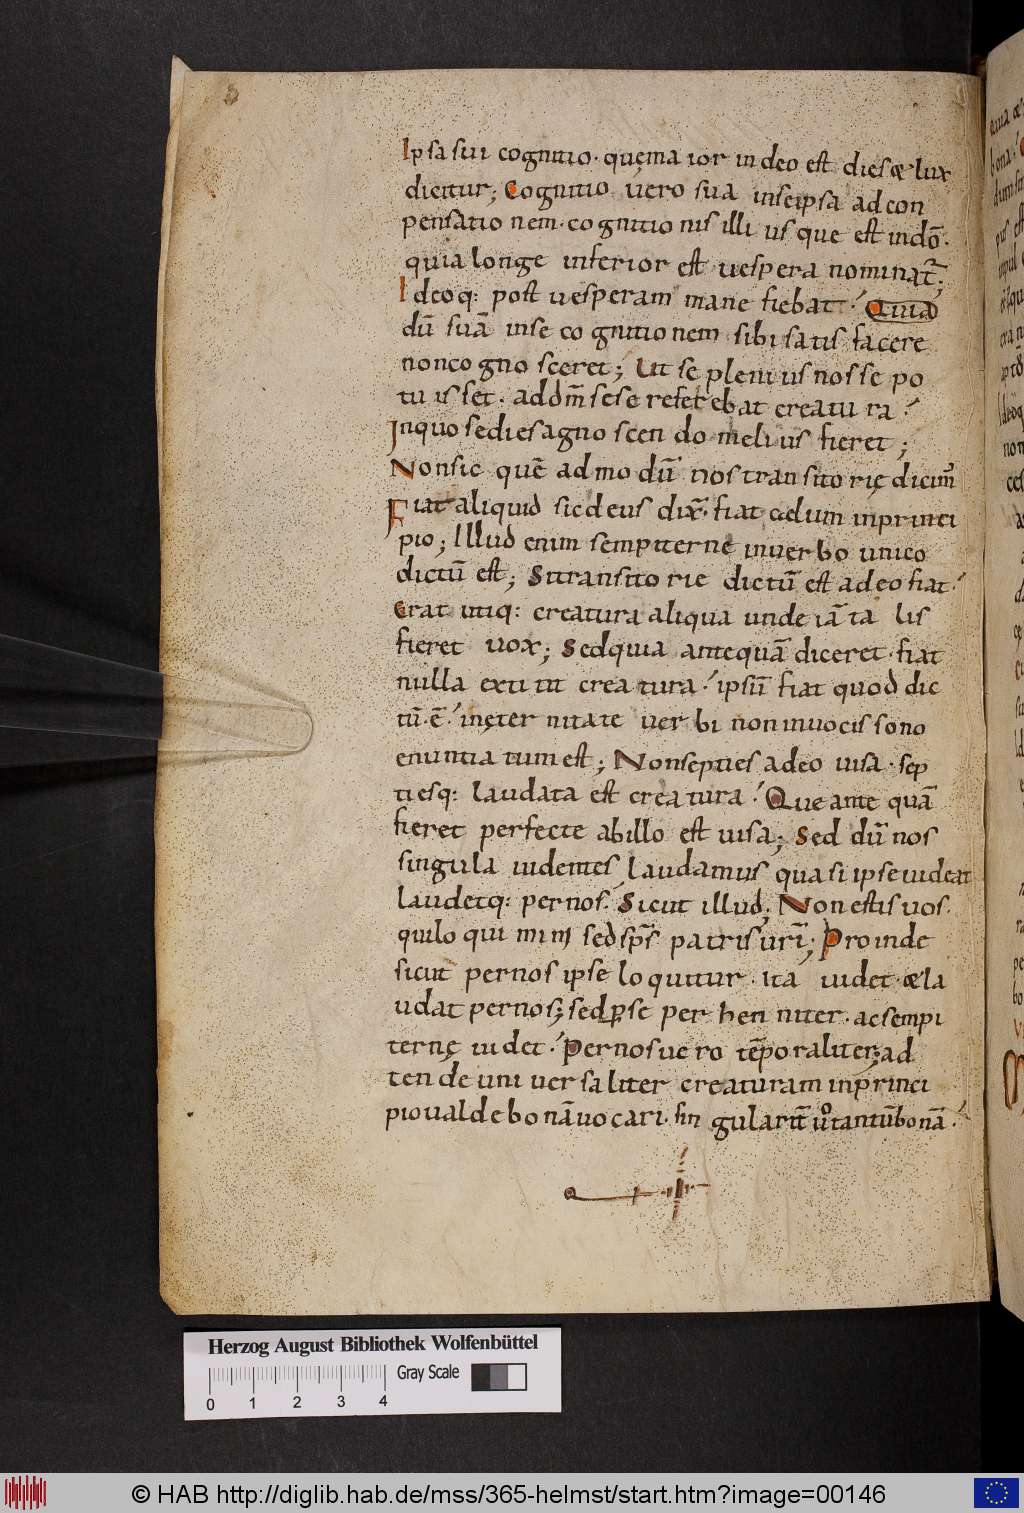 Ipsa sui cognitio· quema ior in deo est dies & lux
dicitur; Cognitio vero sua inseipsa ad con
pensatio nem· cognitio nis illi us que est indō·
quia longe inferior est uespera nominat᷑;
Ideoq: post uesperam mane fiebat· Quia
dū suā inse co gnitio nem sibi satis facere
non co gno sceret; Ut se pleni us nos se po
tu is set· ad dm̄ se se refer ebat creatu ra·
Inquo se dies agno scen do meli us fieret;
Non sic quē ad mo dū nos transito rię dicim᷒
Fiat aliquid sic deus dix̄· fiat cælum inprinci
pio; Illud enim sempiterne inuer bo unico
dictū est; Si transito rie dictū est adeo fiat·
Erat utiq: creatura aliqua unde iā ta lis
fieret uox; Sed quia ante quā diceret· fiat
nulla exti tit crea tura· ipsū fiat quod dic
tū· ē· inęter nitate uer bi non inuocis sono
enuntia tum est; Non septies adeo uisa· sep
tiesq: laudata est crea tura· Que ante quā
fieret perfecte abillo est uisa; Sed dū nos
singula uidentes laudamus qua si ipse uideat
laudetq: per nos· Sicut illud; Non estis uos·
qui lo qui mi ni sed sp̄s patris ur̄i· Proinde
sicut per nos ipse lo quitur· ita uidet· & la
udat per nos; sed p̱ se per hen niter· ac sempi
ternę uidet· Per nos ue ro tēporaliter; ad
ten de uni uer saliter creaturam inprinci
pio ualde bo nā uo cari· sin gularit̄ u̇o tantū bo nā·
Herzog August Bibliothek Wolfenbüttel
Gray Scale
0 1 2 3 4
© HAB http://diglib.hab.de/mss/365-helmst/start.htm?image=00146